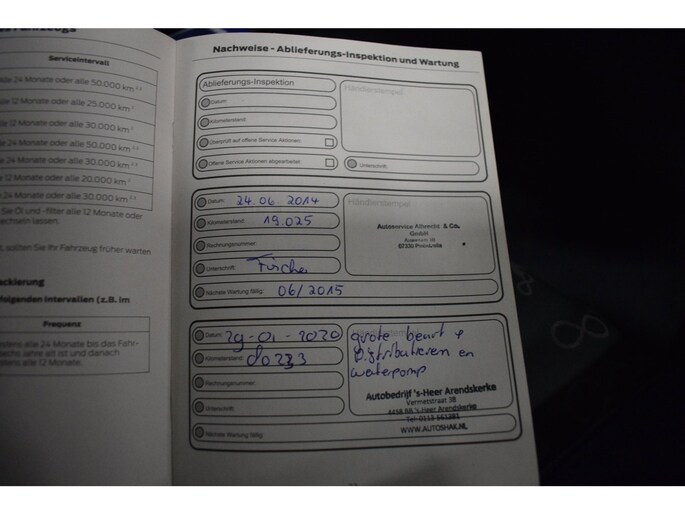 Serviceintervall
Alle 24 Monate oder alle 50.000 km
Alle 12 Monate oder alle 25.000 km
alle 12 Monate oder alle 30.000 km
lle 24 Monate oder alle 50.000 km
lle 24 Monate oder alle 30.000 km
e 12 Monate oder alle 20.000 km
e 24 Monate oder alle 30.000 km
Sie Öl und -filter alle 12 Monate oder
echseln lassen.
, sollten Sie Ihr Fahrzeug früher warten
ackierung
olgenden Intervallen (z.B. im
Frequenz
stens alle 24 Monate bis das Fahr-
sechs Jahre alt ist und danach
tens alle 12 Monate.
Nachweise - Ablieferungs-Inspektion und Wartung
Ablieferungs-Inspektion
Händlerstempel
Datum:
Kilometerstand:
Überprüft auf offene Service Aktionen:
Offene Service Aktionen abgearbeitet:
Unterschrift:
Datum: 24.06.2014
Händlerstempel
Kilometerstand: 19.025
Autoservice Albrecht & Co.
GmbH
Rechnungsnummer:
Unterschrift:
Nächste Wartung fällig: 06/2015
Datum: 29-01-2020
Kilometerstand: 80233
grote beurt +
Distributieriem en
waterpomp
Rechnungsnummer:
Unterschrift:
Autobedrijf 's-Heer Arendskerke
Vermetstraat 38
4458 BB 's-Heer Arendskerke
Tel: 0113 561381
Nächste Wartung fällig:
WWW.AUTOSHAK.NL